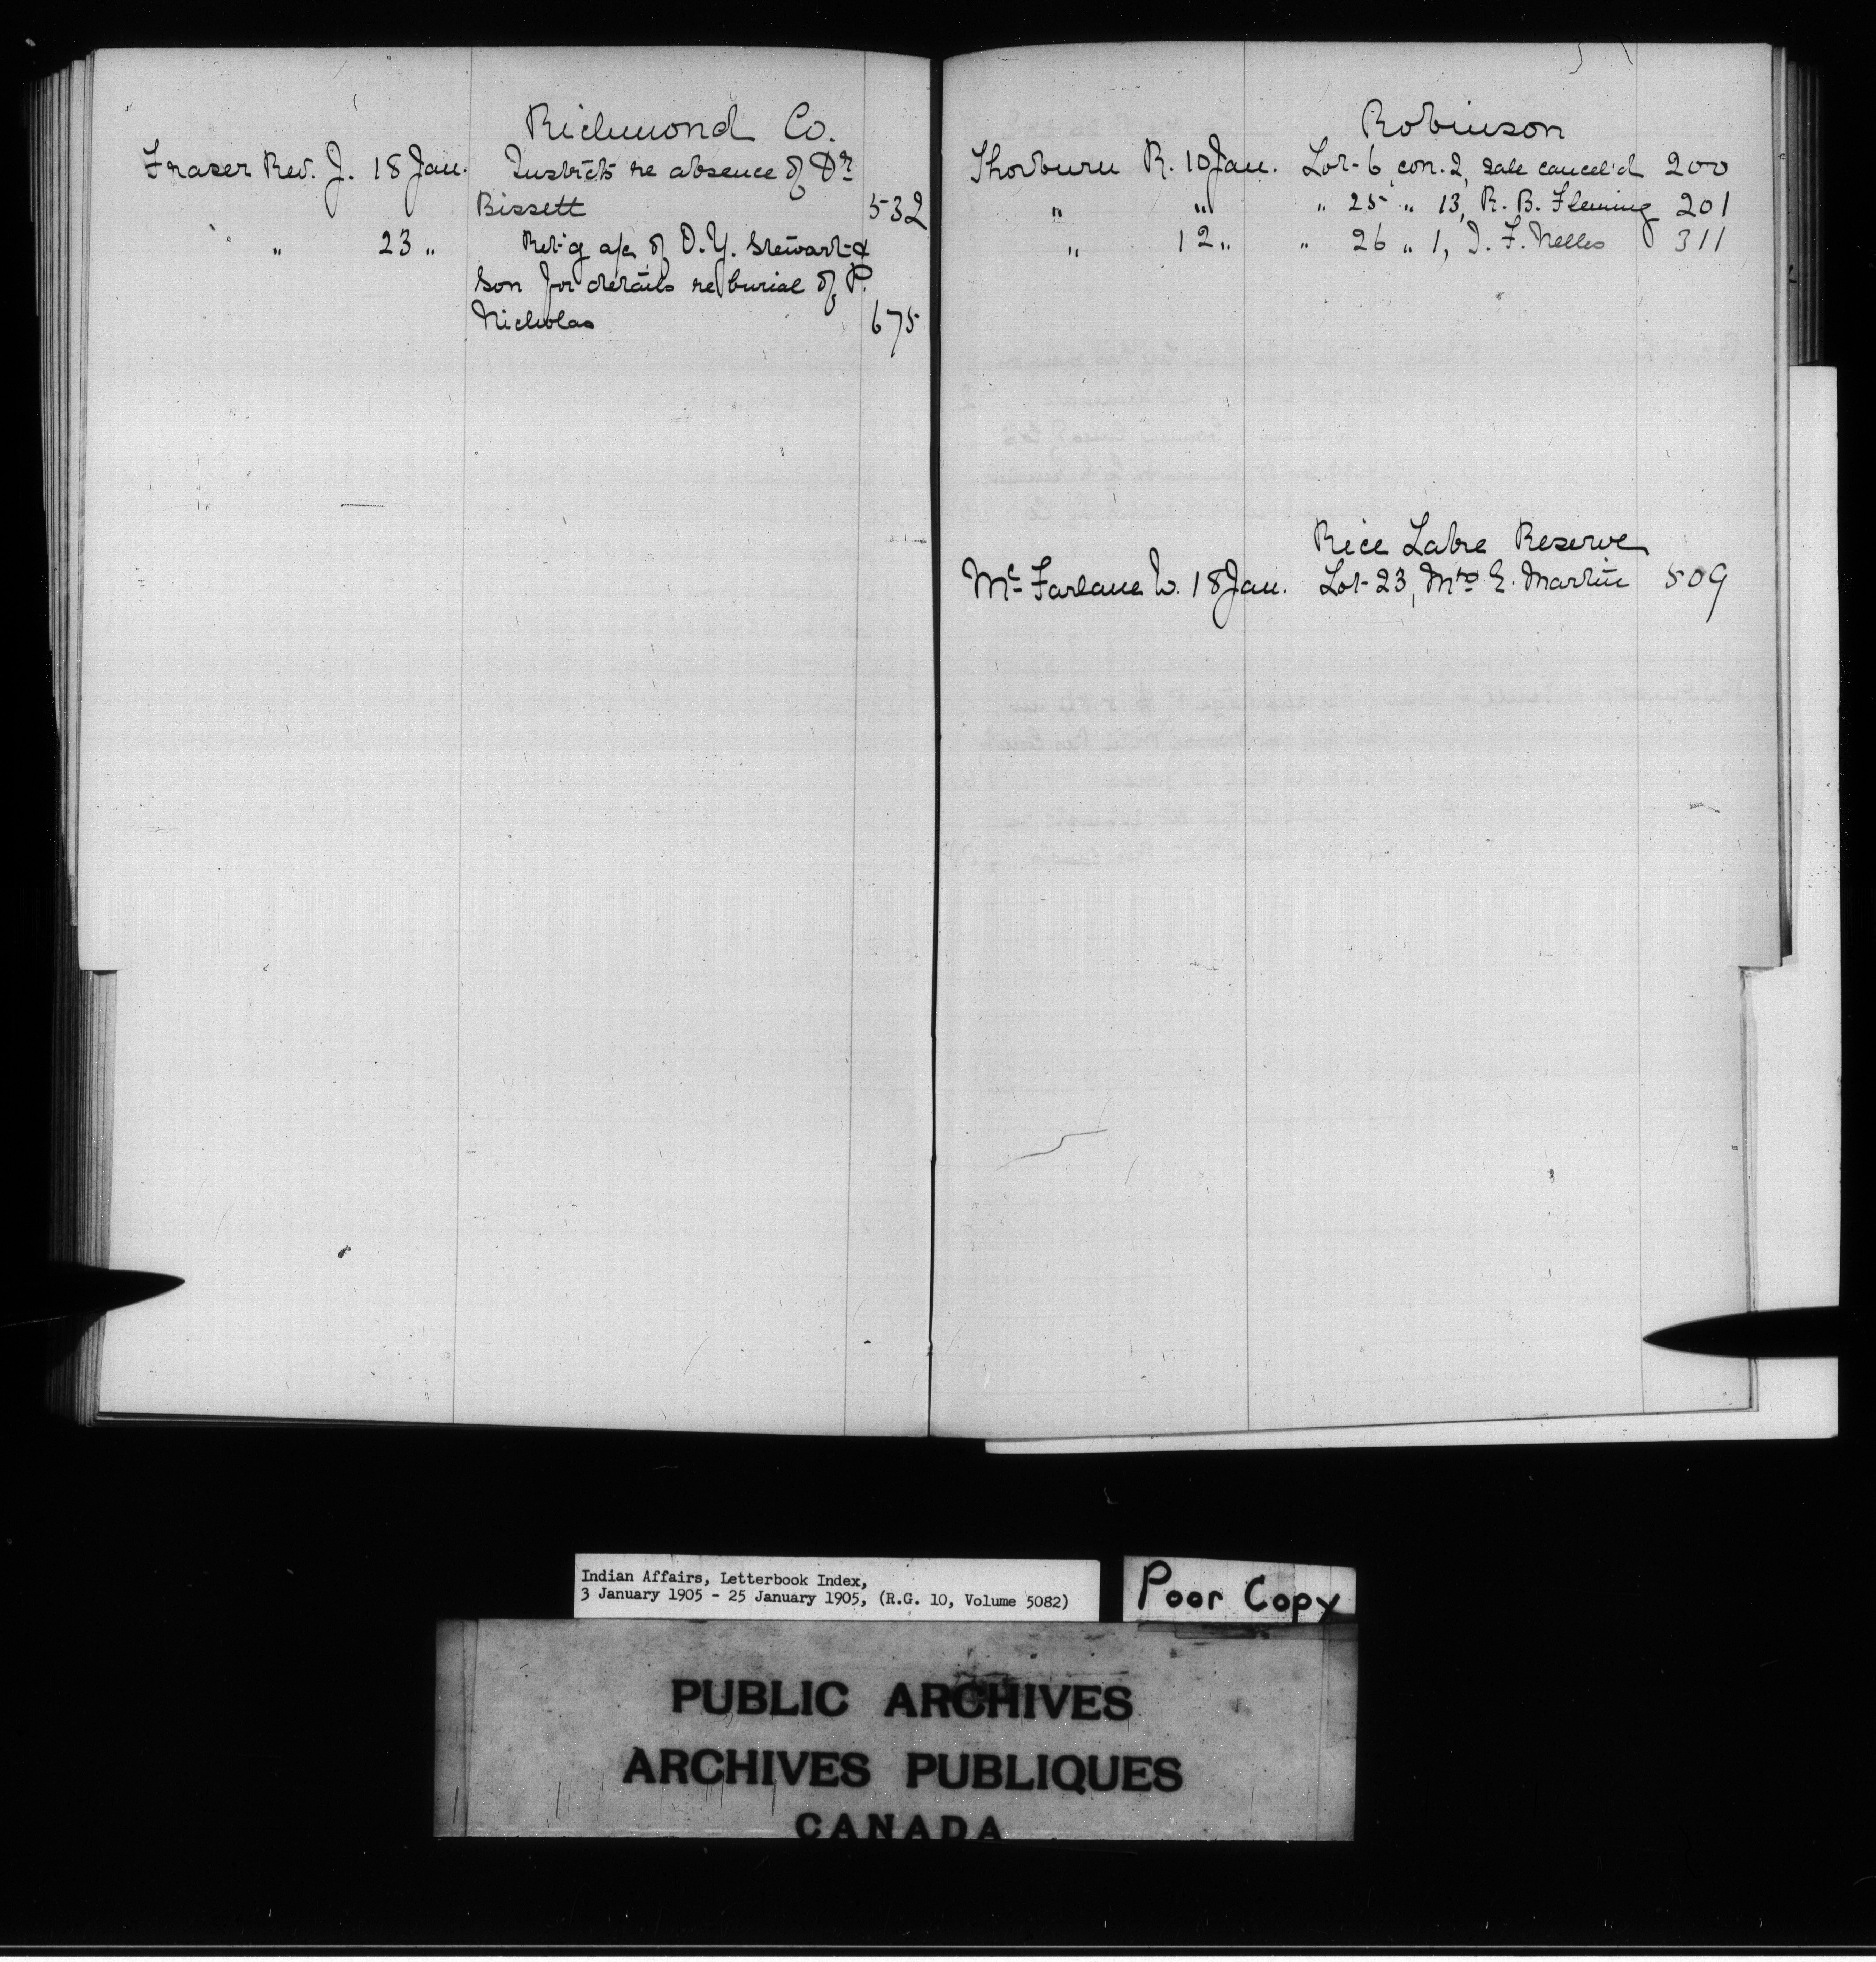 Richmond Co.
Fraser Rev. J. 18 Jan. Instrcts re absence of Dr
Bissett 532
" 23 " Ret'g a/c of D. Y. Stewart &
Son for details re burial of P.
Nicholas 675
Robinson
Thorburn R. 10 Jan. Lot 6, con. 2, sale cancel'd 200
" " " 25 " 13, R. B. Fleming 201
" 12 " " 26 " 1, J. F. Nelles 311
Rice Lake Reserve
Mc Farlane W. 18 Jan. Lot 23, Mrs E. Martin 509
Indian Affairs, Letterbook Index,
3 January 1905 - 25 January 1905, (R.G. 10, Volume 5082)
Poor Copy
PUBLIC ARCHIVES
ARCHIVES PUBLIQUES
CANADA